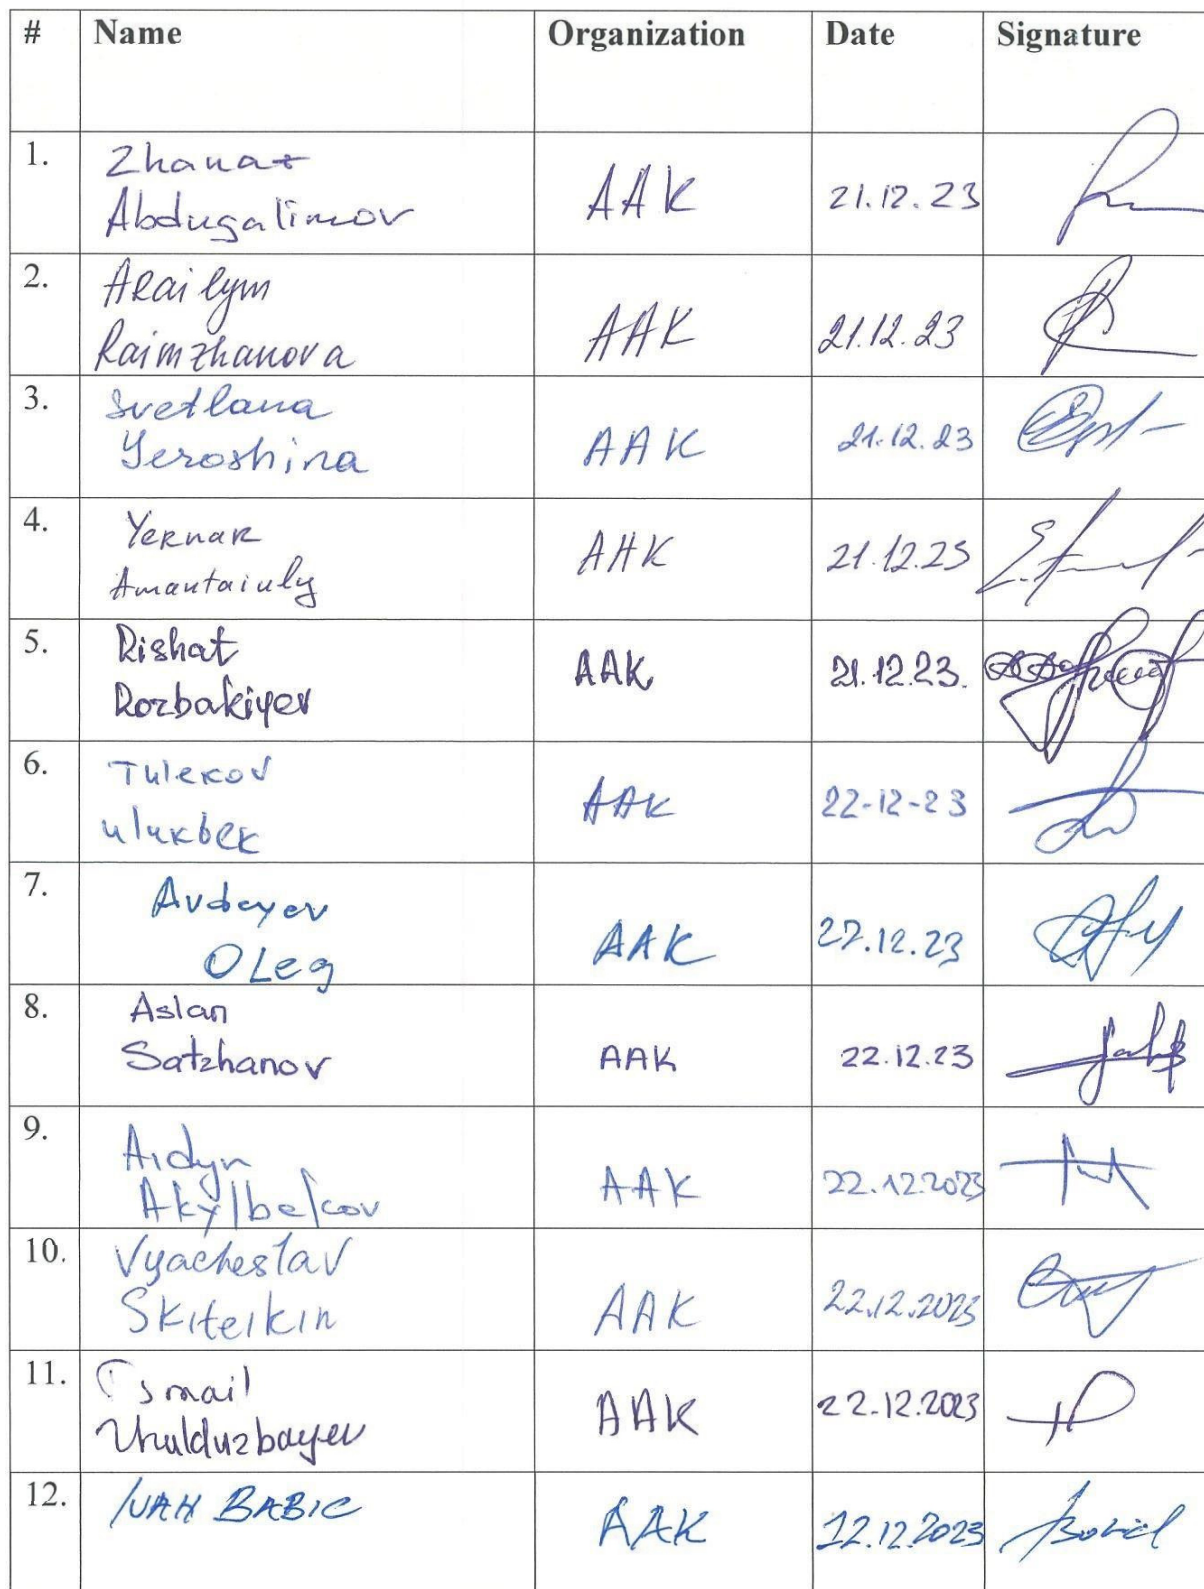 # Name Organization Date Signature
1. Zhanat Abdugalimov AAK 21.12.23
2. Arailym Raimzhanova AAK 21.12.23
3. Svetlana Yeroshina AAK 21.12.23
4. Yernar Amantaiuly AAK 21.12.23
5. Rishat Rozbakiyev AAK 21.12.23.
6. Tulekov Ulukbek AAK 22-12-23
7. Avdeyev Oleg AAK 22.12.23
8. Aslan Satzhanov AAK 22.12.23
9. Aidyn Akylbekov AAK 22.12.2023
10. Vyacheslav Skiteikin AAK 22.12.2023
11. Ismail AAK 22.12.2023
12. IVAN BABIC AAK 12.2023